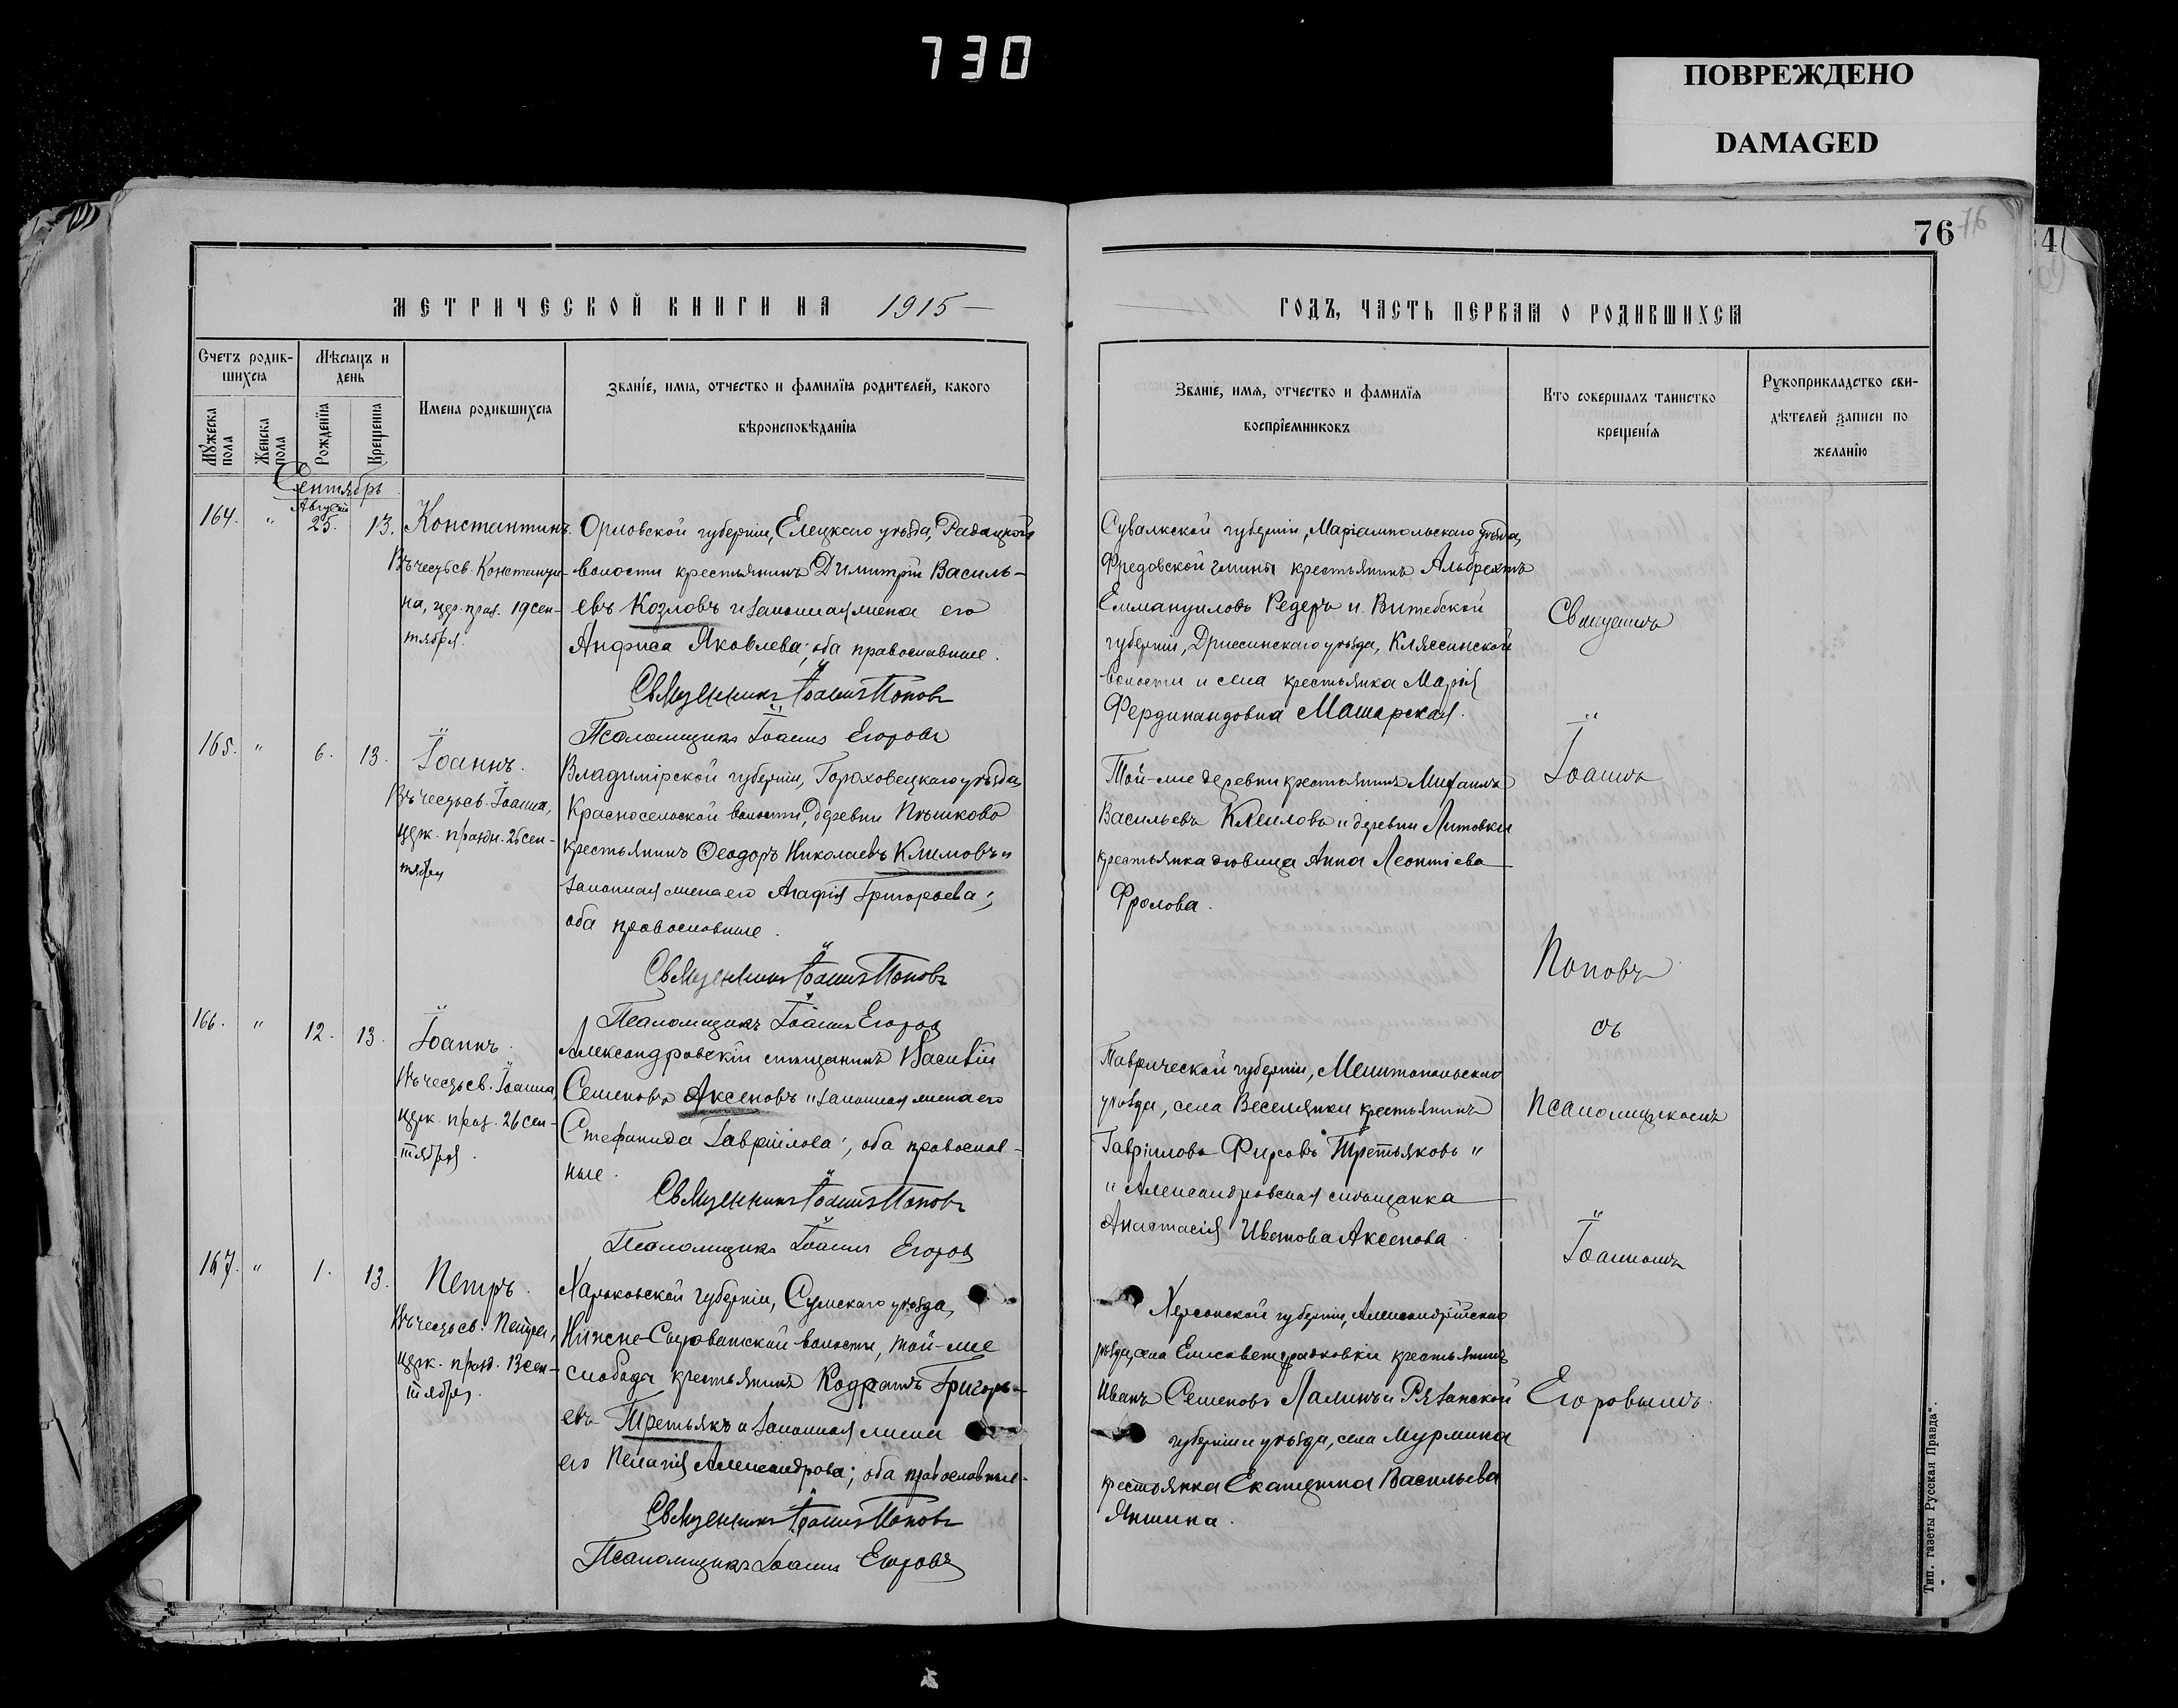 730
ПОВРЕЖДЕНО
DAMAGED
76
76
4
МЕТРИЧЕСКОЙ КНИГИ НА 1915
ГОДЪ, ЧАСТЬ ПЕРВАЯ О РОДИВШИХСЯ
Счетъ родив-
шихся
Мѣсяцъ и
день
Мужеска пола
Женска пола
Рожденїя
Крещенїя
Имена родившихся
Званїе, имя, отчество и фамилїя родителей, какого
вѣроисповѣданїя
Званїе, имя, отчество и фамилїя
воспрїемниковъ
Кто совершалъ таинство
крещенїя
Рукоприкладство сви-
дѣтелей записи по
желанїю
Сентябрь
Августъ
164. " 25. 13. Константинъ.
Въ честь св. Константи-
на, цер. праз. 19 сен-
тября.
Орловской губерніи, Елецкаго уѣзда,
волости крестьянинъ Димитрій Василь-
евъ Козловъ и законная жена его
Анфиса Яковлева; оба православные.
Священникъ Іоаннъ Поповъ
Псаломщикъ Іоаннъ Егоровъ
165. " 6. 13. Іоаннъ.
Въ честь св. Іоанна,
церк. праздн. 26 сен-
тября
Владимірской губерніи, Гороховецкаго уѣзда,
Красносельской волости, деревни Пѣшково
крестьянинъ Ѳеодоръ Николаевъ Климовъ и
законная жена его Агафія Григорьева;
оба православные.
Священникъ Іоаннъ Поповъ
Псаломщикъ Іоаннъ Егоровъ
166. " 12. 13. Іоаннъ.
Въ честь св. Іоанна,
церк. праз. 26 сен-
тября.
Александровскій мѣщанинъ Василій
Семеновъ Аксеновъ и законная жена его
Стефанида Гавріилова; оба православ-
ные.
Священникъ Іоаннъ Поповъ
Псаломщикъ Іоаннъ Егоровъ
167. " 1. 13. Петръ.
Въ честь св. Петра,
церк. празд. 13 сен-
тября.
Харьковской губерніи, Сумскаго уѣзда,
Нижне-Сыроватской волости, той-же
слободы крестьянинъ Кодратъ Григорь-
евъ Третьякъ и законная жена
его Пелагія Александрова; оба православные.
Священникъ Іоаннъ Поповъ
Псаломщикъ Іоаннъ Егоровъ
Сувалкской губерніи, Маріампольскаго уѣзда,
Фредовской гмины крестьянинъ Альбрехтъ
Еммануиловъ Редеръ и Витебской
губерніи, Дриссинскаго уѣзда, Клясcинской
волости и села крестьянка Марія
Фердинандовна Машарская.
Той-же деревни крестьянинъ Михаилъ
Васильевъ и деревни Литовки
крестьянка дѣвица Анна Леонтіева
Фролова.
Таврической губерніи, Мелитопольскаго
уѣзда, села Веселянки крестьянинъ
Гавріилъ Фирсовъ Третьяковъ и
" Александровская мѣщанка
Анастасія Аксенова.
Херсонской губерніи, Александрійскаго
уѣзда, села Елисаветградковки крестьянинъ
Иванъ Семеновъ Лалинъ и Рязанской
губерніи и уѣзда, села Мурмина
крестьянка Екатерина Васильева
Яншина.
Священникъ
Іоаннъ
Поповъ
съ
псаломщикомъ
Іоанномъ
Егоровымъ.
Тип. газеты „Русская Правда“.